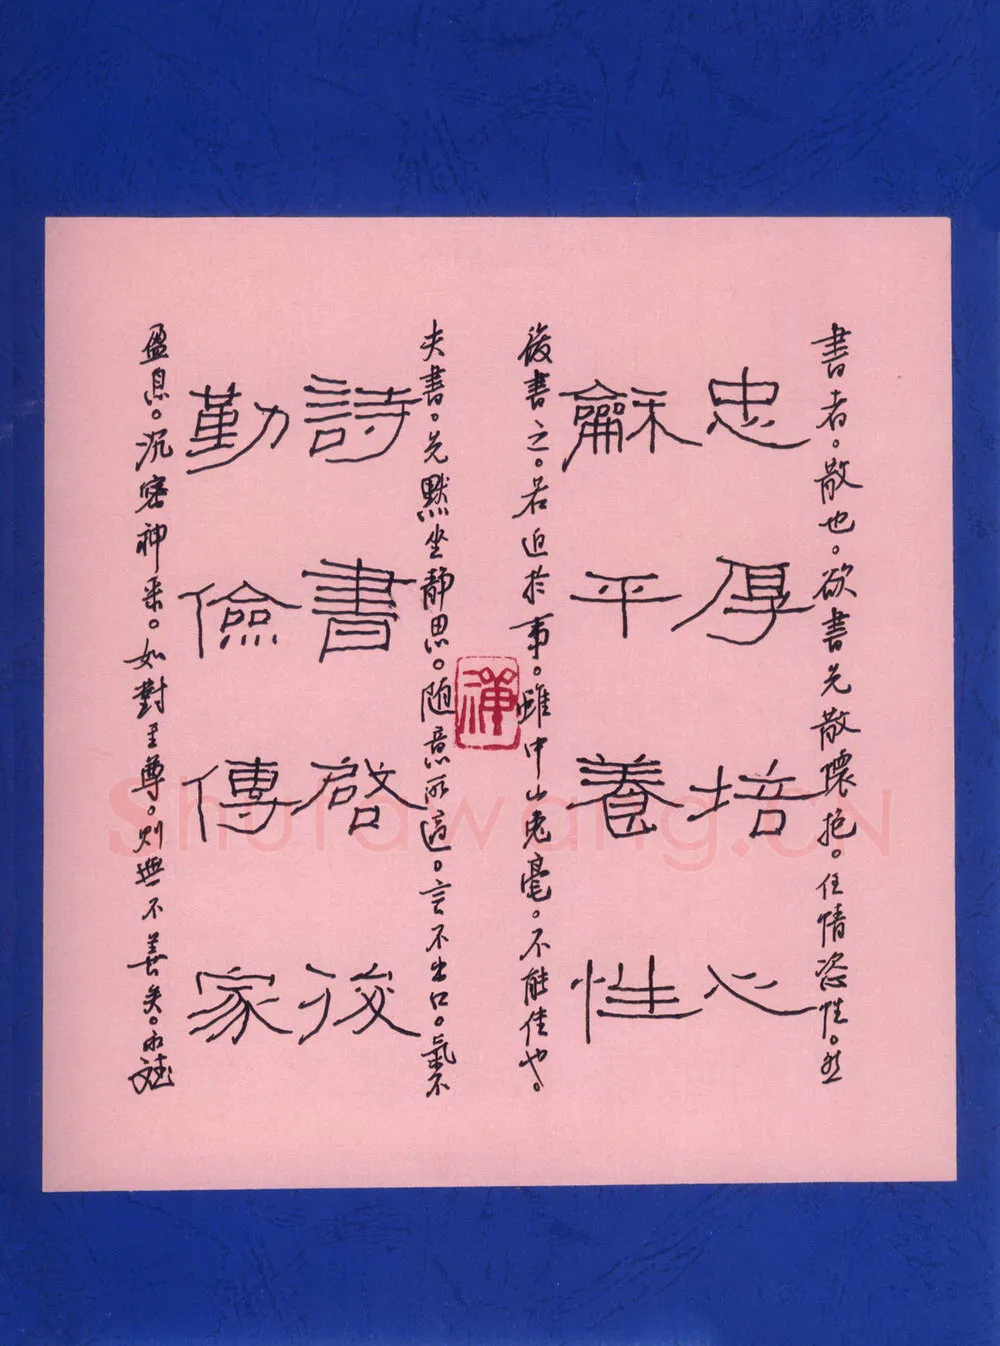 書者。散也。欲書先散懷抱。任情恣性。然
忠厚培心
龢平養性
後書之。若迫於事。雖中山兔毫。不能佳也。
夫書。先默坐静思。随意所適。言不出口。氣不
詩書啓後
勤儉傳家
盈息。沉密神采。如對至尊。則無不善矣。
Shufawang.CN